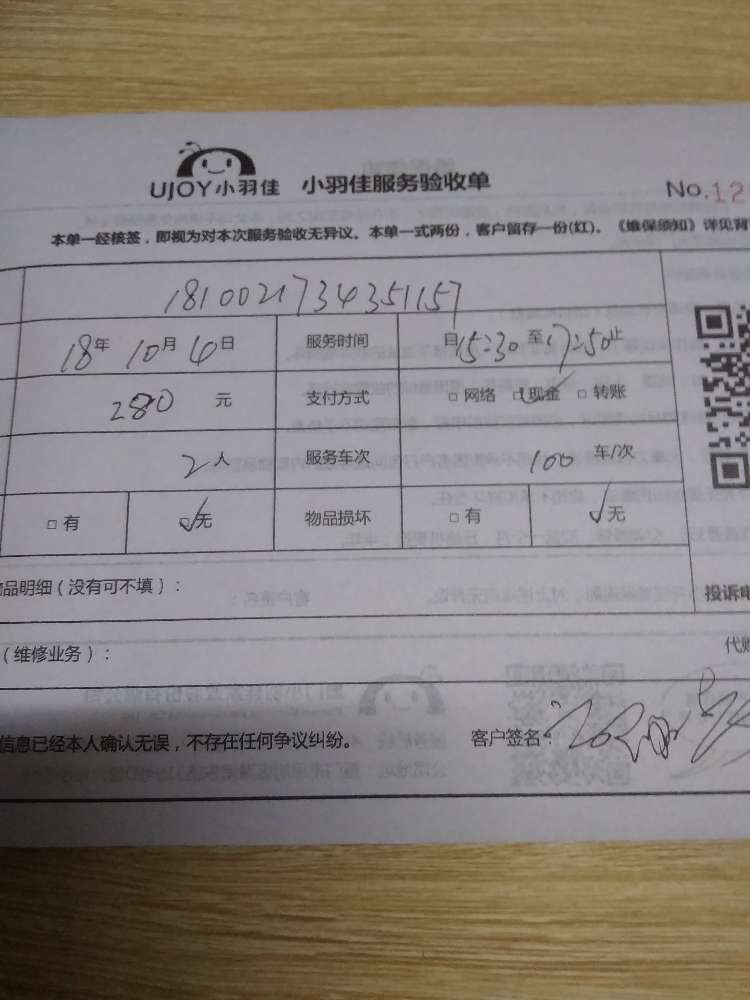 UJOY小羽佳 小羽佳服务验收单 No.12
本单一经核签，即视为对本次服务验收无异议。本单一式两份，客户留存一份(红)。《维保须知》详见背
181002173435​1157
18年 10月 6日 服务时间 自15:30至17:50止
280 元 支付方式 □ 网络 ☑ 现金 □ 转账
2人 服务车次 100 车/次
□ 有 ☑ 无 物品损坏 □ 有 ☑ 无
品明细（没有可不填）： 投诉电
（维修业务）： 代购
信息已经本人确认无误，不存在任何争议纠纷。 客户签名：